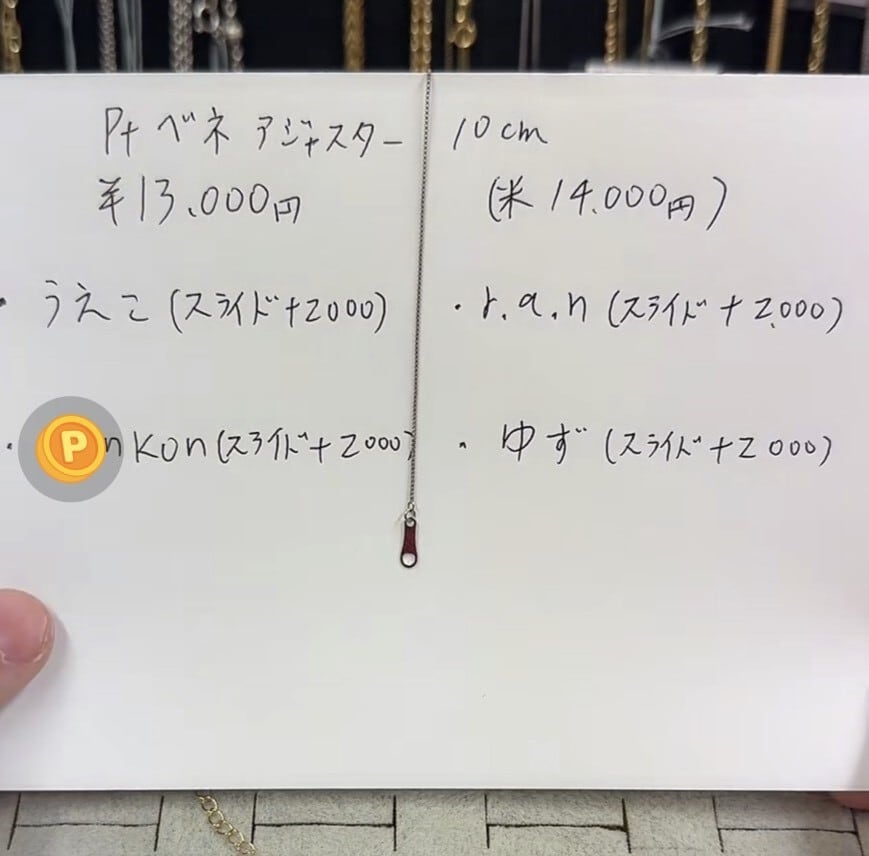 Pt ベネ アジャスター 10cm
¥13.000円 (米 14.000円)
・うえこ (スライド+2000) ・r.a.n (スライド+2.000)
・nkon (スライド+2000) ・ゆず (スライド+2000)
P